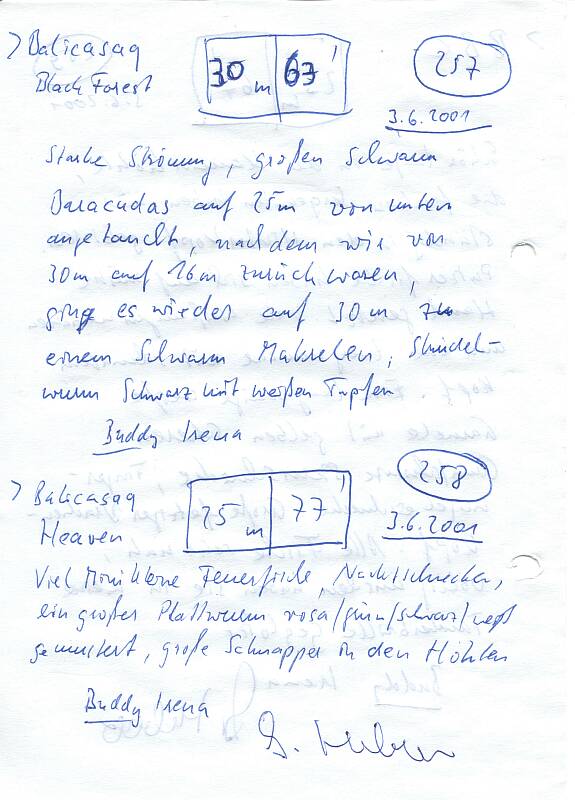 > Balicasag 30 m 63' 257
Black Forest
3.6.2001
Starke Strömung, großen Schwarm
Baracudas auf 25m von unten
angetaucht, nachdem wir von
30m auf 16m zurück waren,
ging es wieder auf 30m zu
einem Schwarm Makrelen, Strudel-
wurm Schwarz mit weißen Tupfen
Buddy Irena
> Balicasag 25 m 77' 258
Heaven
3.6.2001
Viel kleine Feuerfische, Nacktschnecken,
ein großer Plattwurm rosa/grün/schwarz/weiß
gemustert, große Schnapper in den Höhlen
Buddy Irena